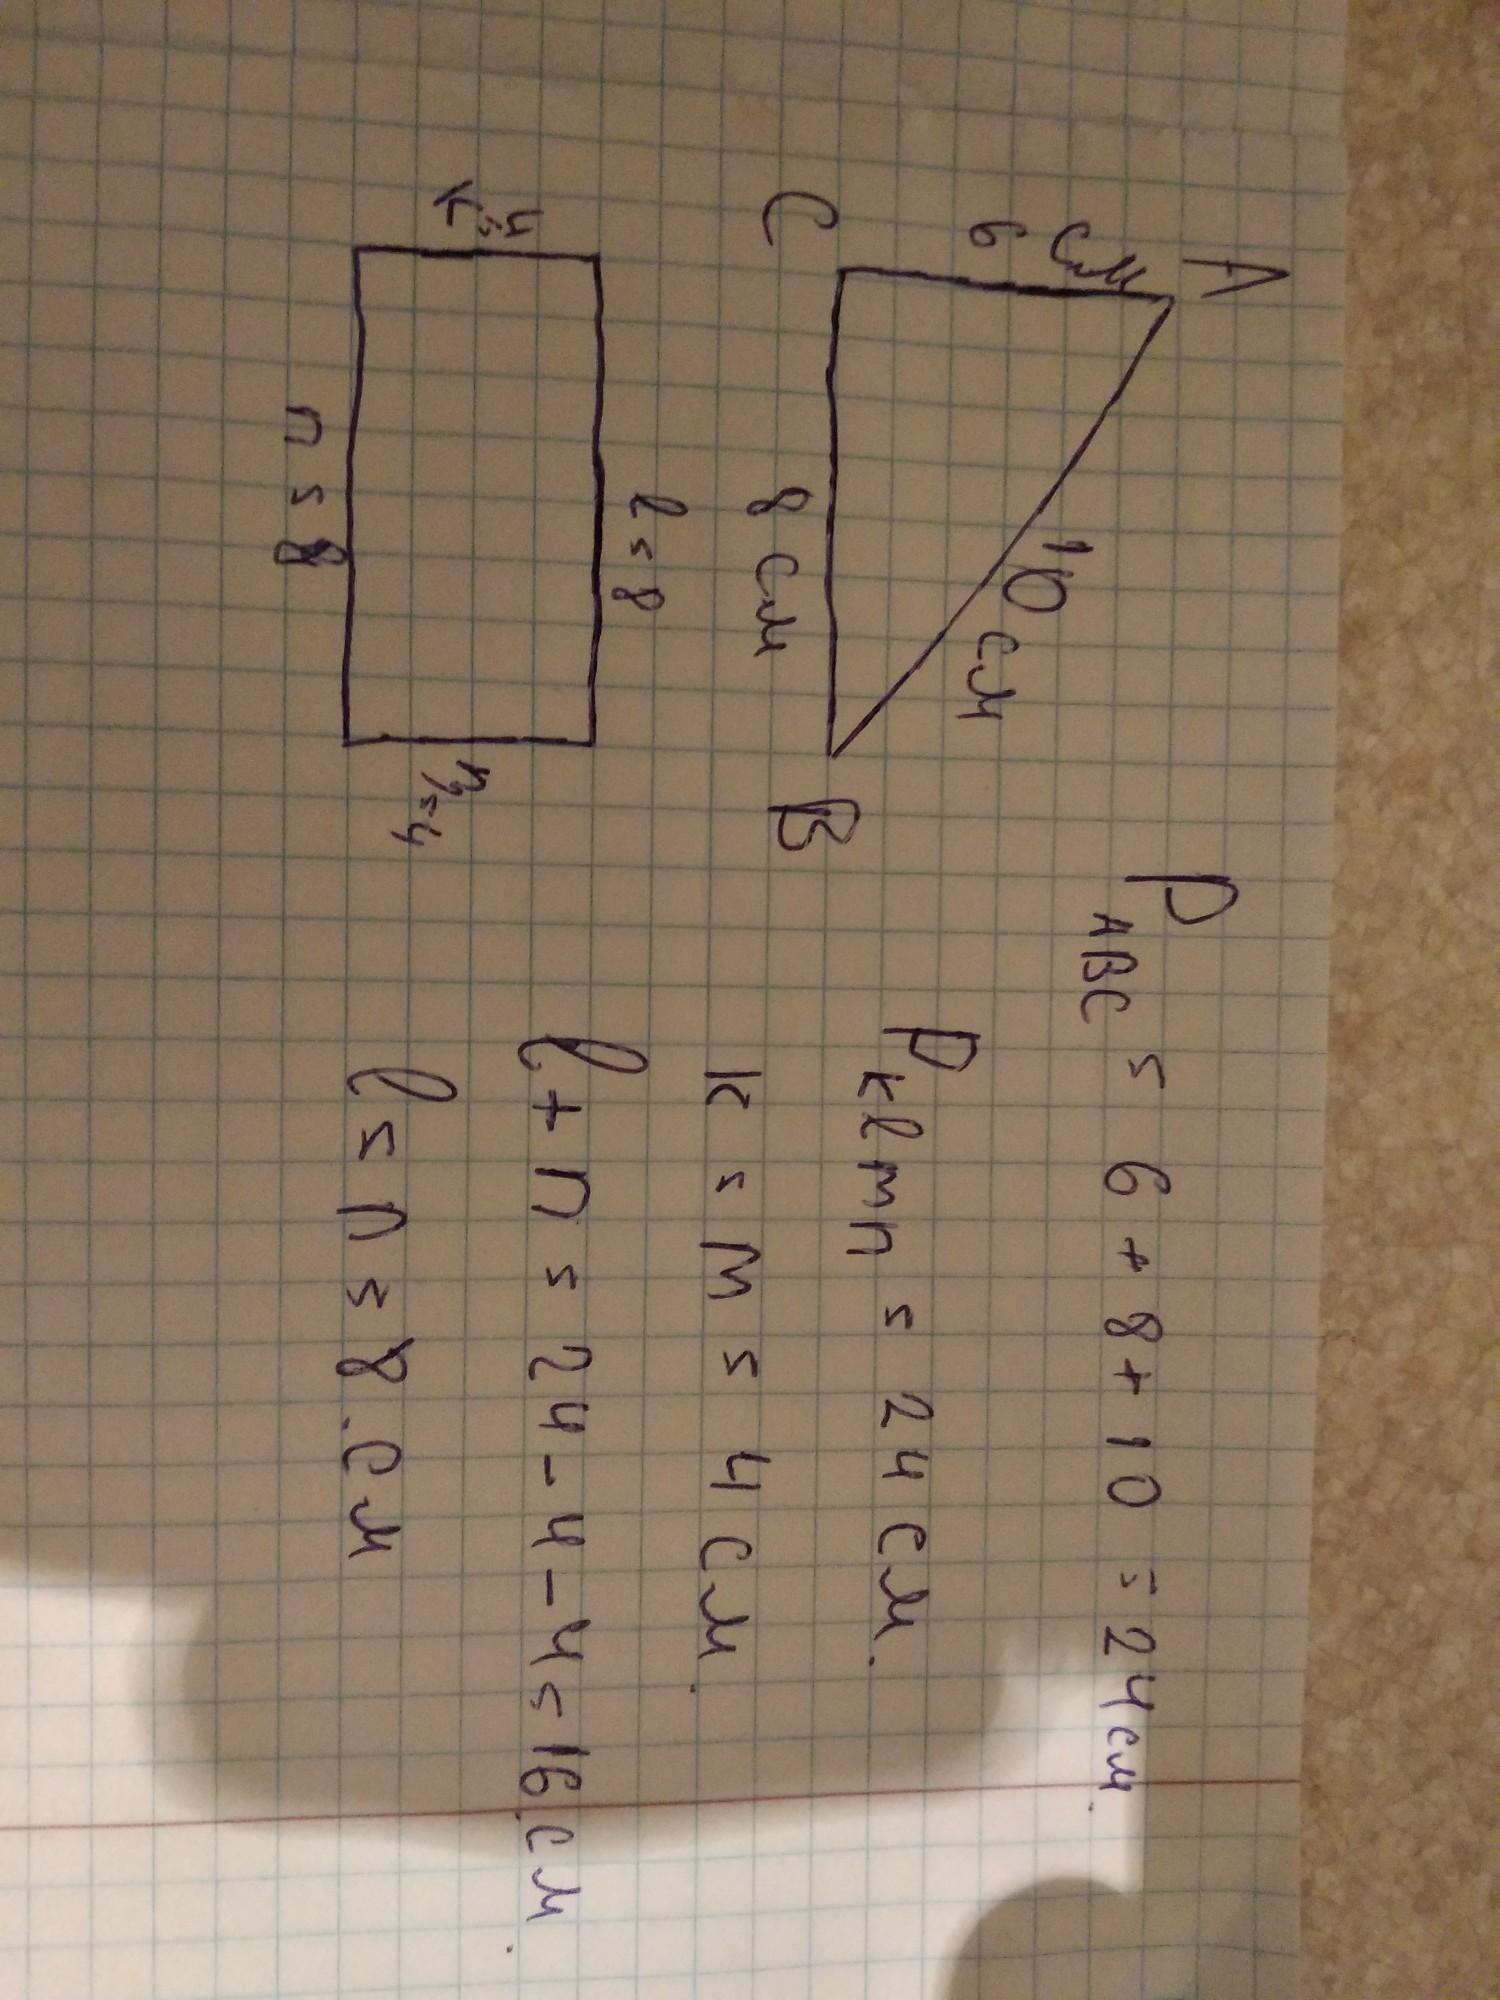 A
6 см
10 см
C
8 см
B
l = 8
k = 4
m = 4
n = 8
P ABC = 6 + 8 + 10 = 24 см.
P klmn = 24 см.
k = m = 4 см.
l + n = 24 - 4 - 4 = 16 см.
l = n = 8 см